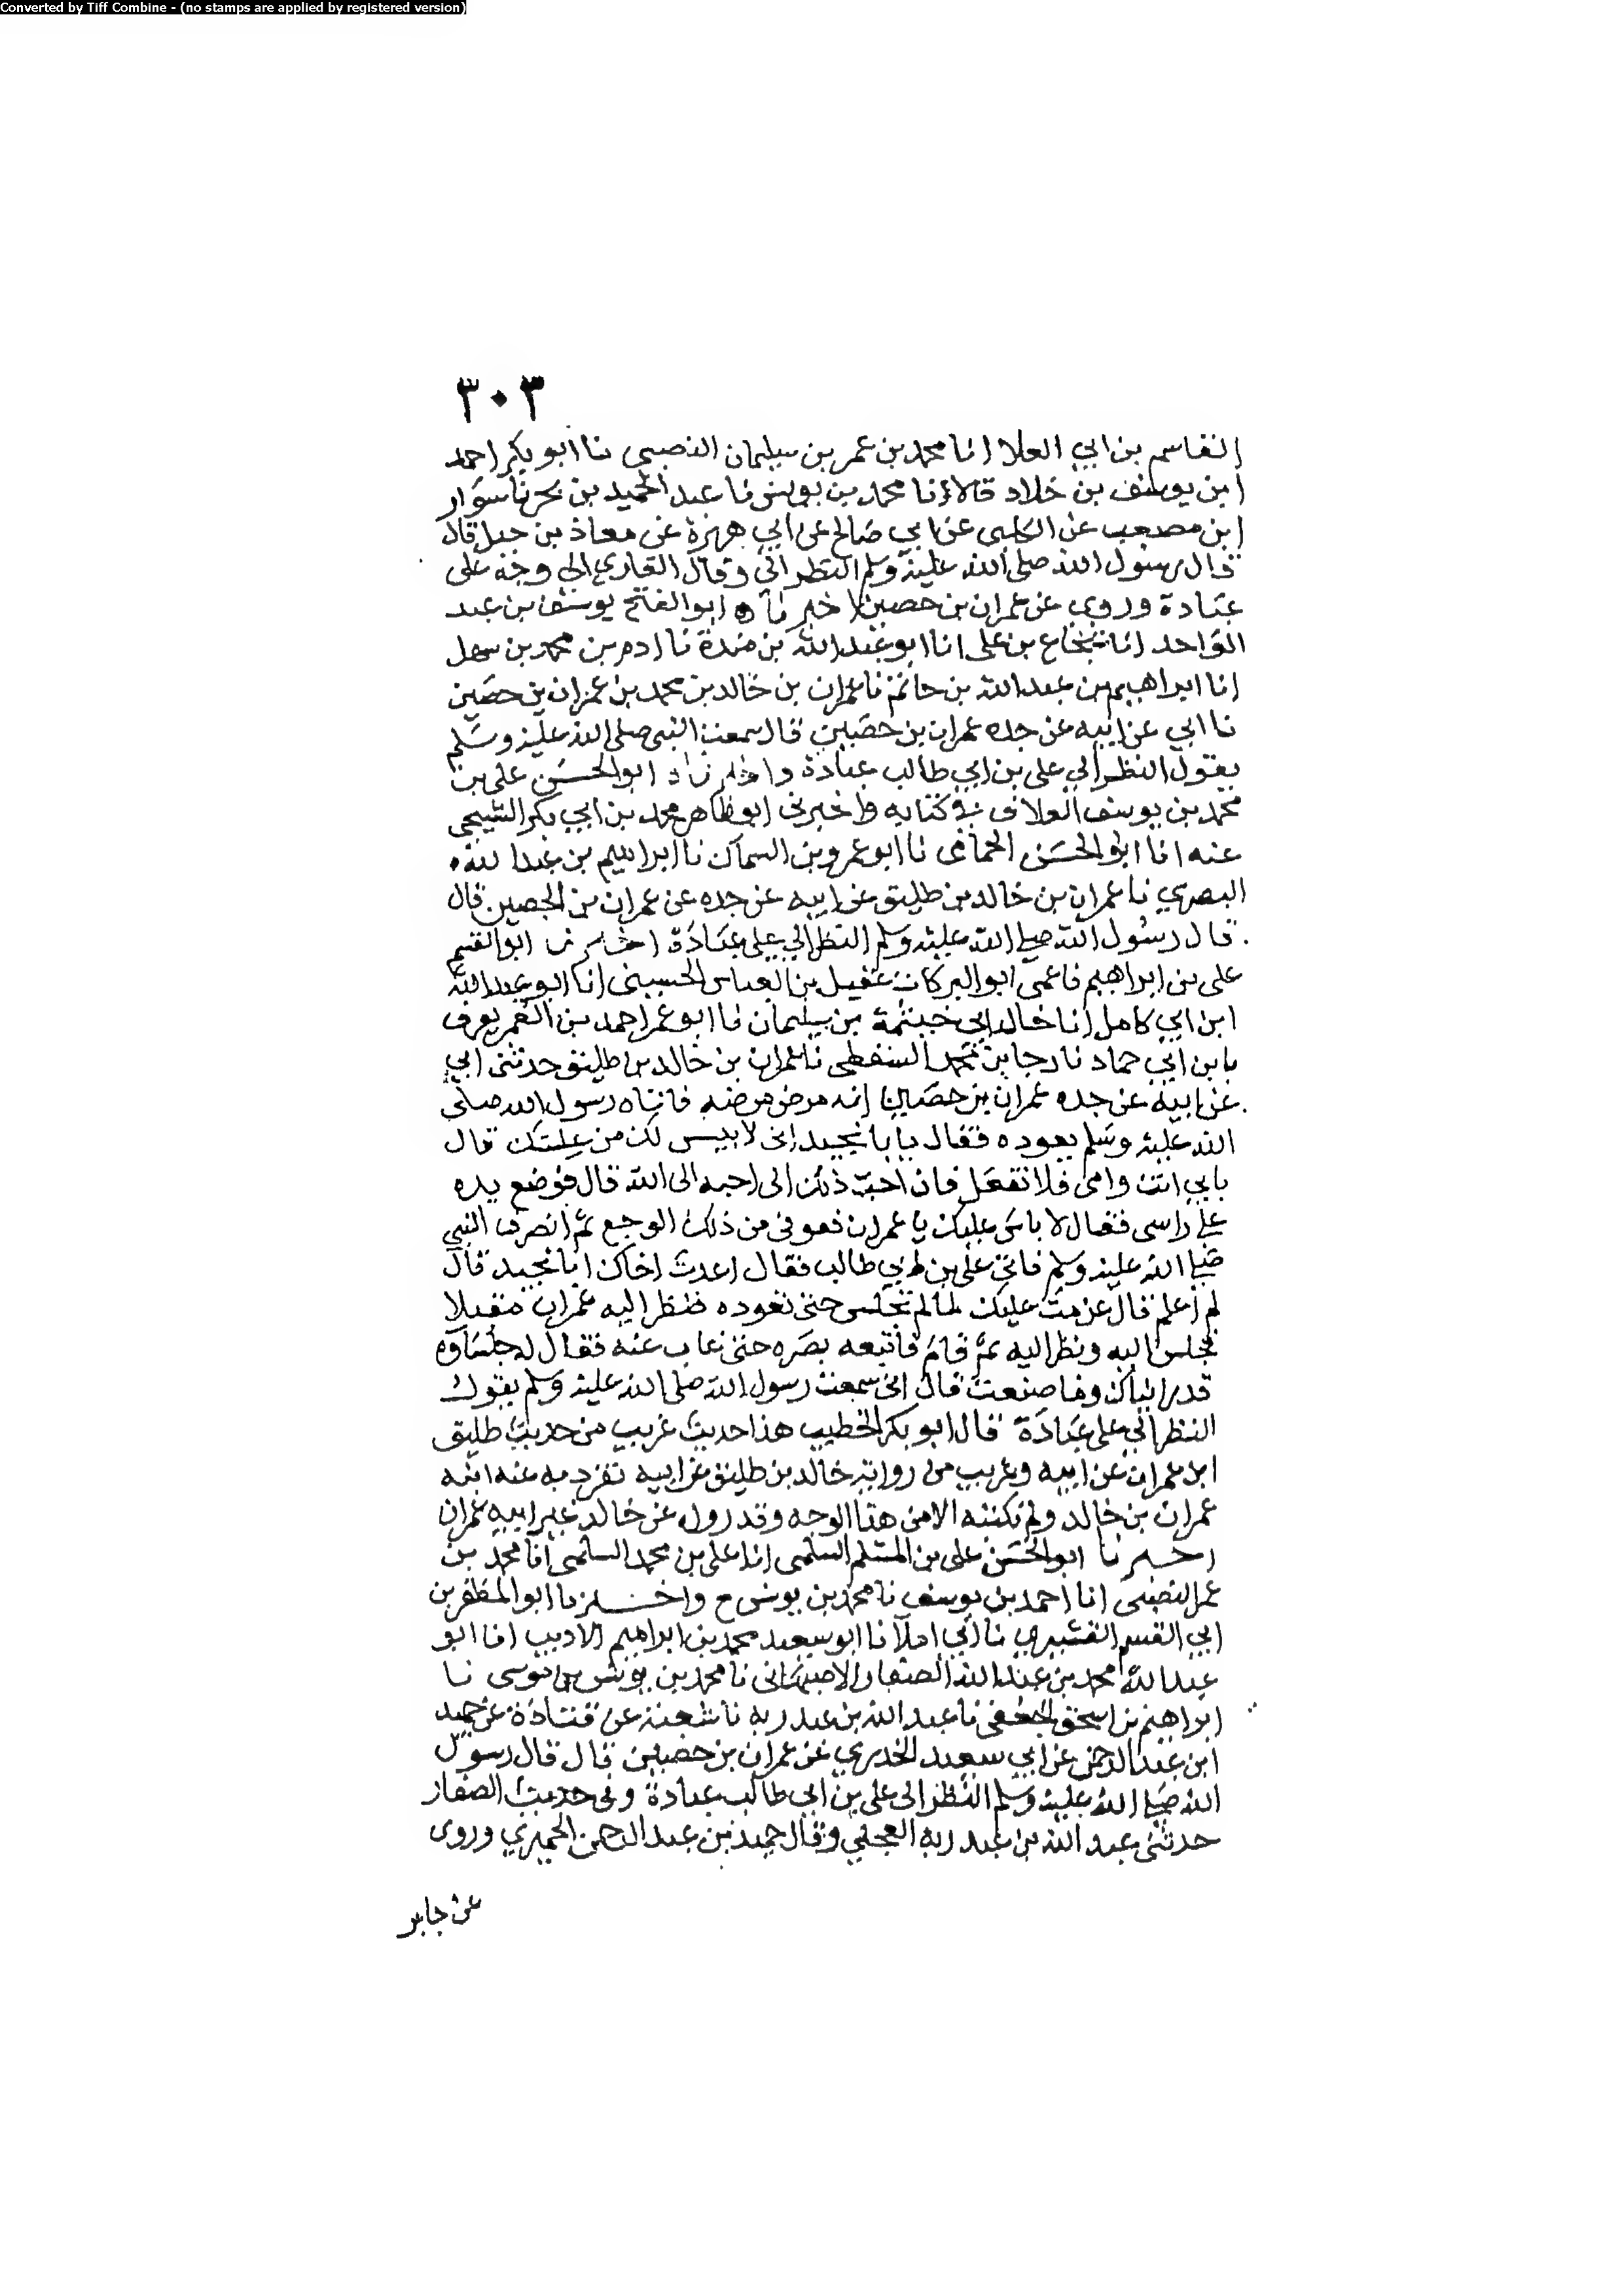 Converted by Tiff Combine - (no stamps are applied by registered version)
٣٠٣
القاسم بن ابي العلا انا محمد بن عمر بن سليمان النصيبى نا ابو بكر احمد
ابن يوسف بن خلاد قالا نا محمد بن يونس نا عبد الحميد بن بحر نا سوار
ابن مصعب عن الكلبى عن ابي صالح عن ابي هريرة عن معاذ بن جبل قال
قال رسول الله صلى الله عليه وسلم النظر الى وقال القاري الي وجه على
عبادة وروى عن عمران بن حصين اخبرناه ابو الفتح يوسف بن عبد
الواحد انا شجاع بن على انا ابو عبد الله بن مندة نا ادم بن محمد بن سهل
انا ابراهيم بن عبد الله بن حاتم نا عمران بن خالد بن محمد بن عمران بن حصين
نا ابي عن ابيه عن جده عمران بن حصين قال سمعت النبى صلى الله عليه وسلم
يقول النظر الي على بن ابي طالب عبادة ابو الحسن على بن
محمد بن يوسف العلاف في كتابه واخبرنى ابو طاهر محمد بن ابي بكر السنجى
عنه انا ابو الحسن الحمامى نا ابو عمرو بن السماك نا ابراهيم بن عبد الله
البصري نا عمران بن خالد بن طليق عن ابيه عن جده عن عمران بن الحصين قال
قال رسول الله صلى الله عليه وسلم النظر الي على عبادة اخبرنا ابو القسم
على بن ابراهيم نا عمى ابو البركات عقيل بن العباس الحسينى انا ابو عبد الله
ابن ابي كامل انا خال ابي خيثمة بن سليمان نا ابو عمر احمد بن الغمر يعرف
بابن ابي حماد نا رجا بن محمد السقطى نا عمران بن خالد بن طليق حدثنى ابي
عن ابيه عن جده عمران بن حصين انه مرض مرضه فاتاه رسول الله صلى
الله عليه وسلم يعوده فقال يا با نجيد انى لا بيس لك من علتك قال
بابي انت وامى فلا تفعل فان احب ذلك الى احبه الى الله قال فوضع يده
على راسى فقال لا باس عليك يا عمران فعوفى من ذلك الوجع ثم انصرف النبي
صلى الله عليه وسلم فاتى على بن ابي طالب فقال اعدت اخاك ابا نجيد قال
لم اعلم قال عزمت عليك لما لم تجلس حتى تعوده فنظر اليه عمران مقبلا
فجلس اليه ونظر اليه ثم قام فاتبعه بصره حتى غاب عنه فقال له جلساوه
قد رايناك وما صنعت قال انى سمعت رسول الله صلى الله عليه وسلم يقول
النظر الي على عبادة قال ابو بكر الخطيب هذا حديث غريب من حديث طليق
ابن عمران عن ابيه وغريب من رواية خالد بن طليق عن ابيه تفرد به عنه ابنه
عمران بن خالد ولم نكتبه الا من هذا الوجه وقد رواه عن خالد غير ابيه عمران
اخبرنا ابو الحسن على بن المسلم السلمى انا على بن محمد السلمى انا محمد بن
عمر النصيبى انا احمد بن يوسف نا محمد بن يونس ح واخبرنا ابو المظفر بن
ابي القسم القشيري نا ابي املا نا ابو سعيد محمد بن ابراهيم الاديب انا ابو
عبد الله محمد بن عبد الله الصفار الاصبهانى نا محمد بن يونس بن موسى نا
ابراهيم بن اسحق الجعفى نا عبد الله بن عبد ربه نا شعبة عن قتادة عن حميد
ابن عبد الرحمن عن ابي سعيد الخدري عن عمران بن حصين قال قال رسول
الله صلى الله عليه وسلم النظر الى على بن ابى طالب عبادة وفى حديث الصفار
حدثنى عبد الله بن عبد ربه العجلي وقال حميد بن عبد الرحمن الحميري وروى
عن جابر